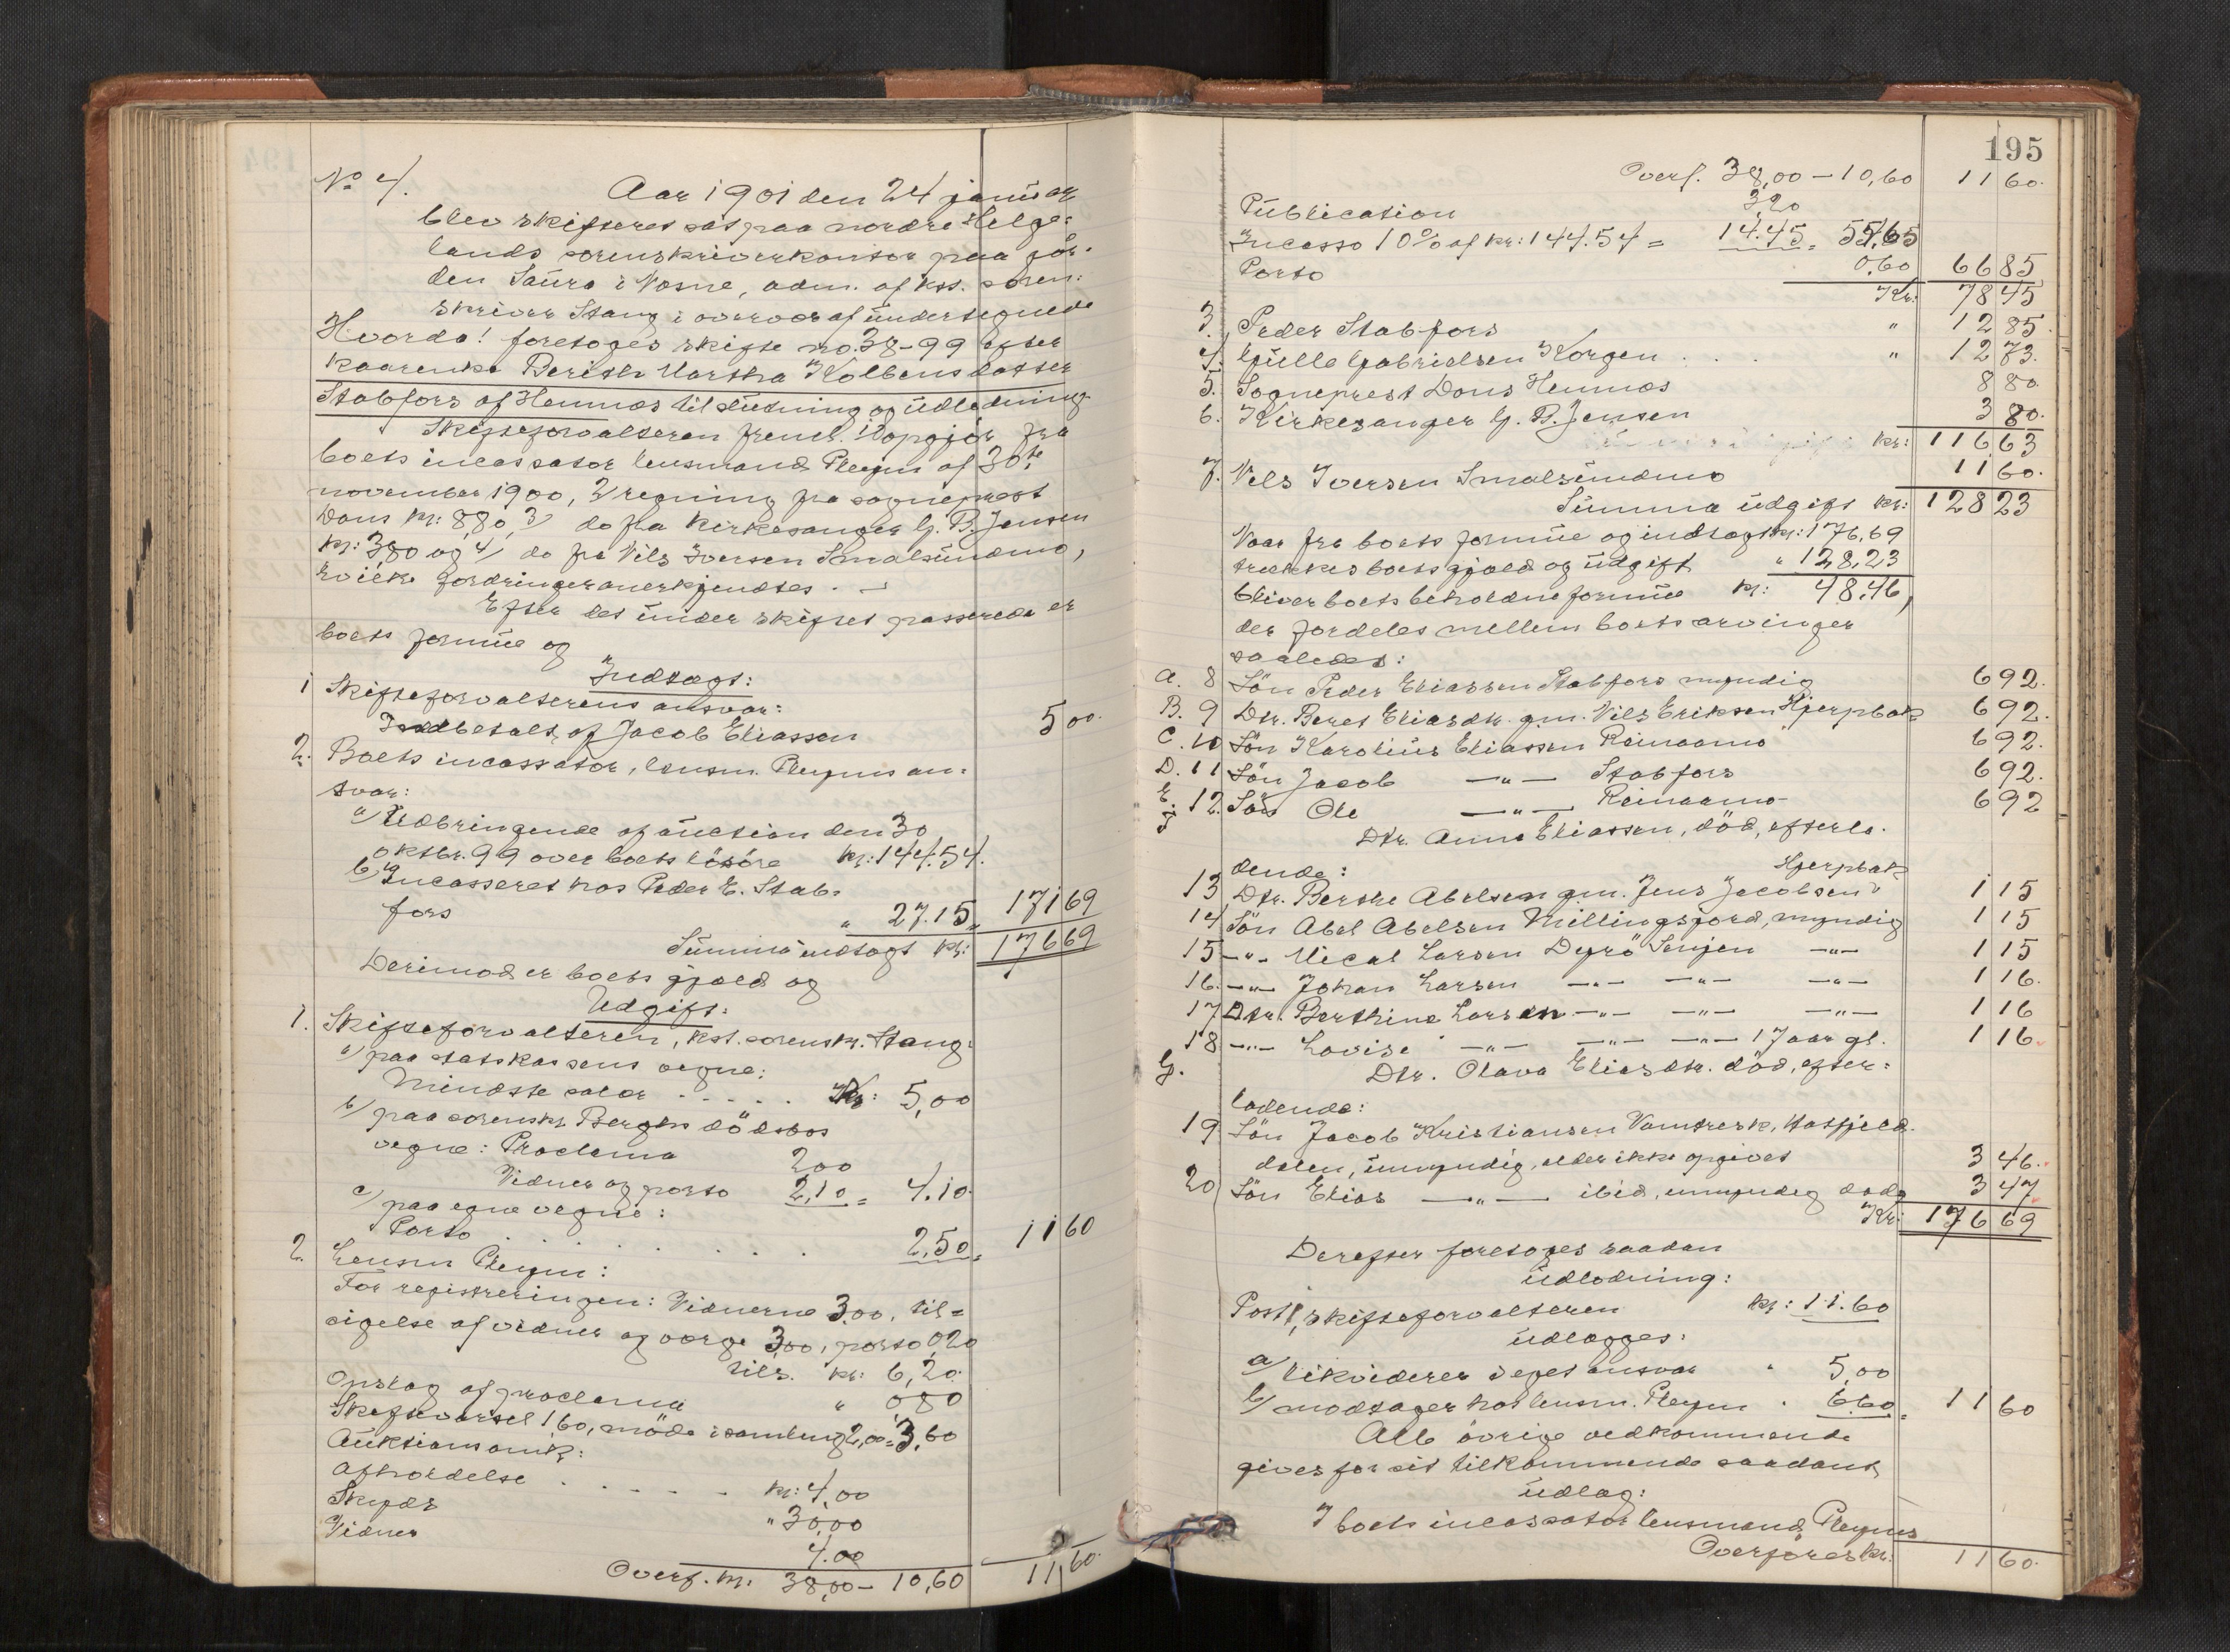 No 4.
Aar 1901 den 24 januar
blev skifteret sat paa nordre Helge-
lands sorenskriverkontor paa går-
den Saura i Nesne, adm. af kst. soren-
skriver Stang i overvær af undertegnede
Hvorda! foretoges skifte no. 38-99 efter
kaarenke Berith Martha Kolbensdatter
Stabfors af Hemnæs til slutning og udlodning.
Skifteforvalteren freml. 1) opgjör fra
boets incassator lensmand Pleym af 30te
november 1900, 2) regning fra sogneprest
Dons kr: 8,80, 3) do fra kirkesanger G. B. Jensen
kr: 3,80 og 4) do fra Nils Iversen Smalsundmo,
hvilke fordringer anerkjendtes. —
Efter det under skiftet passerede er
boets formue og
Indtægt:
1 Skifteforvalterens ansvar:
Indbetalt af Jacob Eliassen 5 00.
2. Boets incassator, lensm. Pleyms an-
svar:
a) Udbringende af auction den 30
oktbr. 99 over boets lösöre kr: 144.54.
b) Incasseret hos Peder E. Stab-
fors " 27.15 = 171 69
Summa indtægt kr: 176 69
Derimod er boets gjæld og
Udgift:
1. Skifteforvalteren, kst. sorenskr. Stang:
a) paa statskassens vegne:
Mindste salær . . . . . Kr: 5,00
b) paa sorenskr. Berghs dödsbos
vegne: Proclama 2 00
Vidner og porto 2,10 = 4.10
c) paa egne vegne:
Porto . . . . . . . 2,50 = 11 60
2. Lensm Pleym:
For registreringen: Vidnerne 3.00, til-
sigelse af vidner og værge 3,00, porto 0,20
tils. kr: 6,20.
Opslag af proclama " 0 80
Skiftevarsel 1 60, möde i samling 2,00 = 3,60
Auktionsomk:
Afholdelse . . . . . kr: 4,00
Skyds " 30,00
Vidner 4.00
Overf. kr: 38,00 – 10,60 11,60.
195
Overf. 38,00 – 10,60 11 60.
Publication 3,20
Incasso 10% af kr: 144.54 = 14.45 = 55,65
Porto 0.60 66 85
Kr: 78 45
3. Peder Stabfors " 12 85.
4. Gulle Gabrielsen Korgen . . . " 12 73.
5. Sogneprest Dons Hemnæs 8 80
6. Kirkesanger G. B. Jensen 3 80.
kr: 116 63
7. Nils Iversen Smalsundmo 11 60.
Summa udgift kr: 128 23
Naar fra boets formue og indtægt kr: 176,69
trækkes boets gjæld og udgift " 128,23
bliver boets beholdne formue kr: 48.46,
der fordeles mellem boets arvinger
saaledes:
A. 8 Sön Peder Eliassen Stabfors myndig 6 92.
B. 9 Dtr. Beret Eliasdtr. gm. Nils Eriksen Hjerpbak 6 92.
C. 10 Sön Karolius Eliassen Reinaamo 6 92.
D. 11 Sön Jacob —"— Stabfors 6 92.
E. 12. Sön Ole —"— Reinaamo 6 92
Dtr. Anne Eliassen, död, efterla-
dende:
13 Dtr. Berthe Abelsen gm. Jens Jacobsen Hjerpbak 1 15
14 Sön Abel Abelsen Millingsjord, myndig 1 15
15 —"— Mical Larsen Dyrö Senjen —"— 1 15
16. —"— Johan Larsen —"— —"— —"— 1 16.
17 Dtr. Berthine Larsen —"— —"— —"— 1 16
18 —"— Lovise —"— —"— —"— 17 aar gl. 1 16.
G. Dtr. Olava Eliasdtr. död, efter-
ladende:
19 Sön Jacob Kristiansen Vamtresk, Hatfjeld-
dalen, umyndig, alder ikke opgivet 3 46.
20 Sön Elias —"— ibid, umyndig dodo 3 47
Kr: 176 69
Derefter foretoges saadan
udlodning:
Post 1, skifteforvalteren kr: 11.60
udlægges:
a) likviderer i eget ansvar " 5,00
b) modtager hos lensm. Pleym " 6.60 = 11 60
Alle övrige vedkommende
gives for sit tilkommende saadant
udlæg:
I boets incassator lensmand Pleyms
Overföres kr: 11 60.